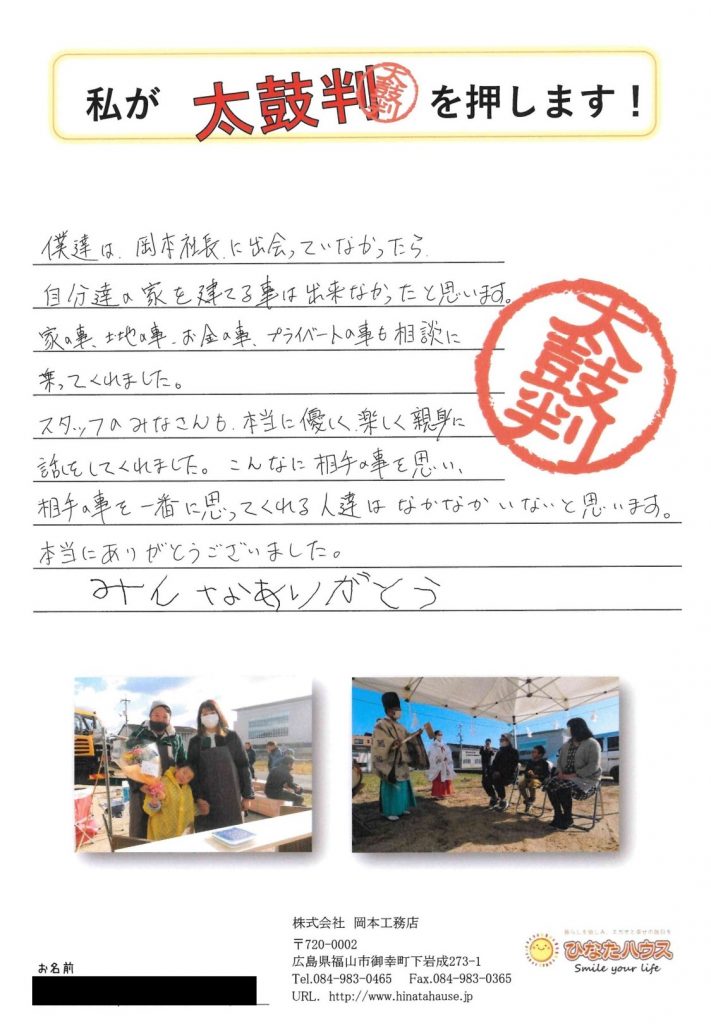 私が 太鼓判 太鼓判 を押します!
僕達は、岡本社長に出会っていなかったら
自分達の家を建てる事は出来なかったと思います。
家の事、土地の事、お金の事、プライベートの事も相談に
乗ってくれました。
スタッフのみなさんも、本当に優しく、楽しく親身に
話をしてくれました。こんなに相手の事を思い、
相手の事を一番に思ってくれる人達はなかなかいないと思います。
本当にありがとうございました。
みんなありがとう
太鼓判
株式会社 岡本工務店
〒720-0002
広島県福山市御幸町下岩成273-1
Tel.084-983-0465 Fax.084-983-0365
URL. http://www.hinatahause.jp
ひなたハウス
Smile your life
お名前